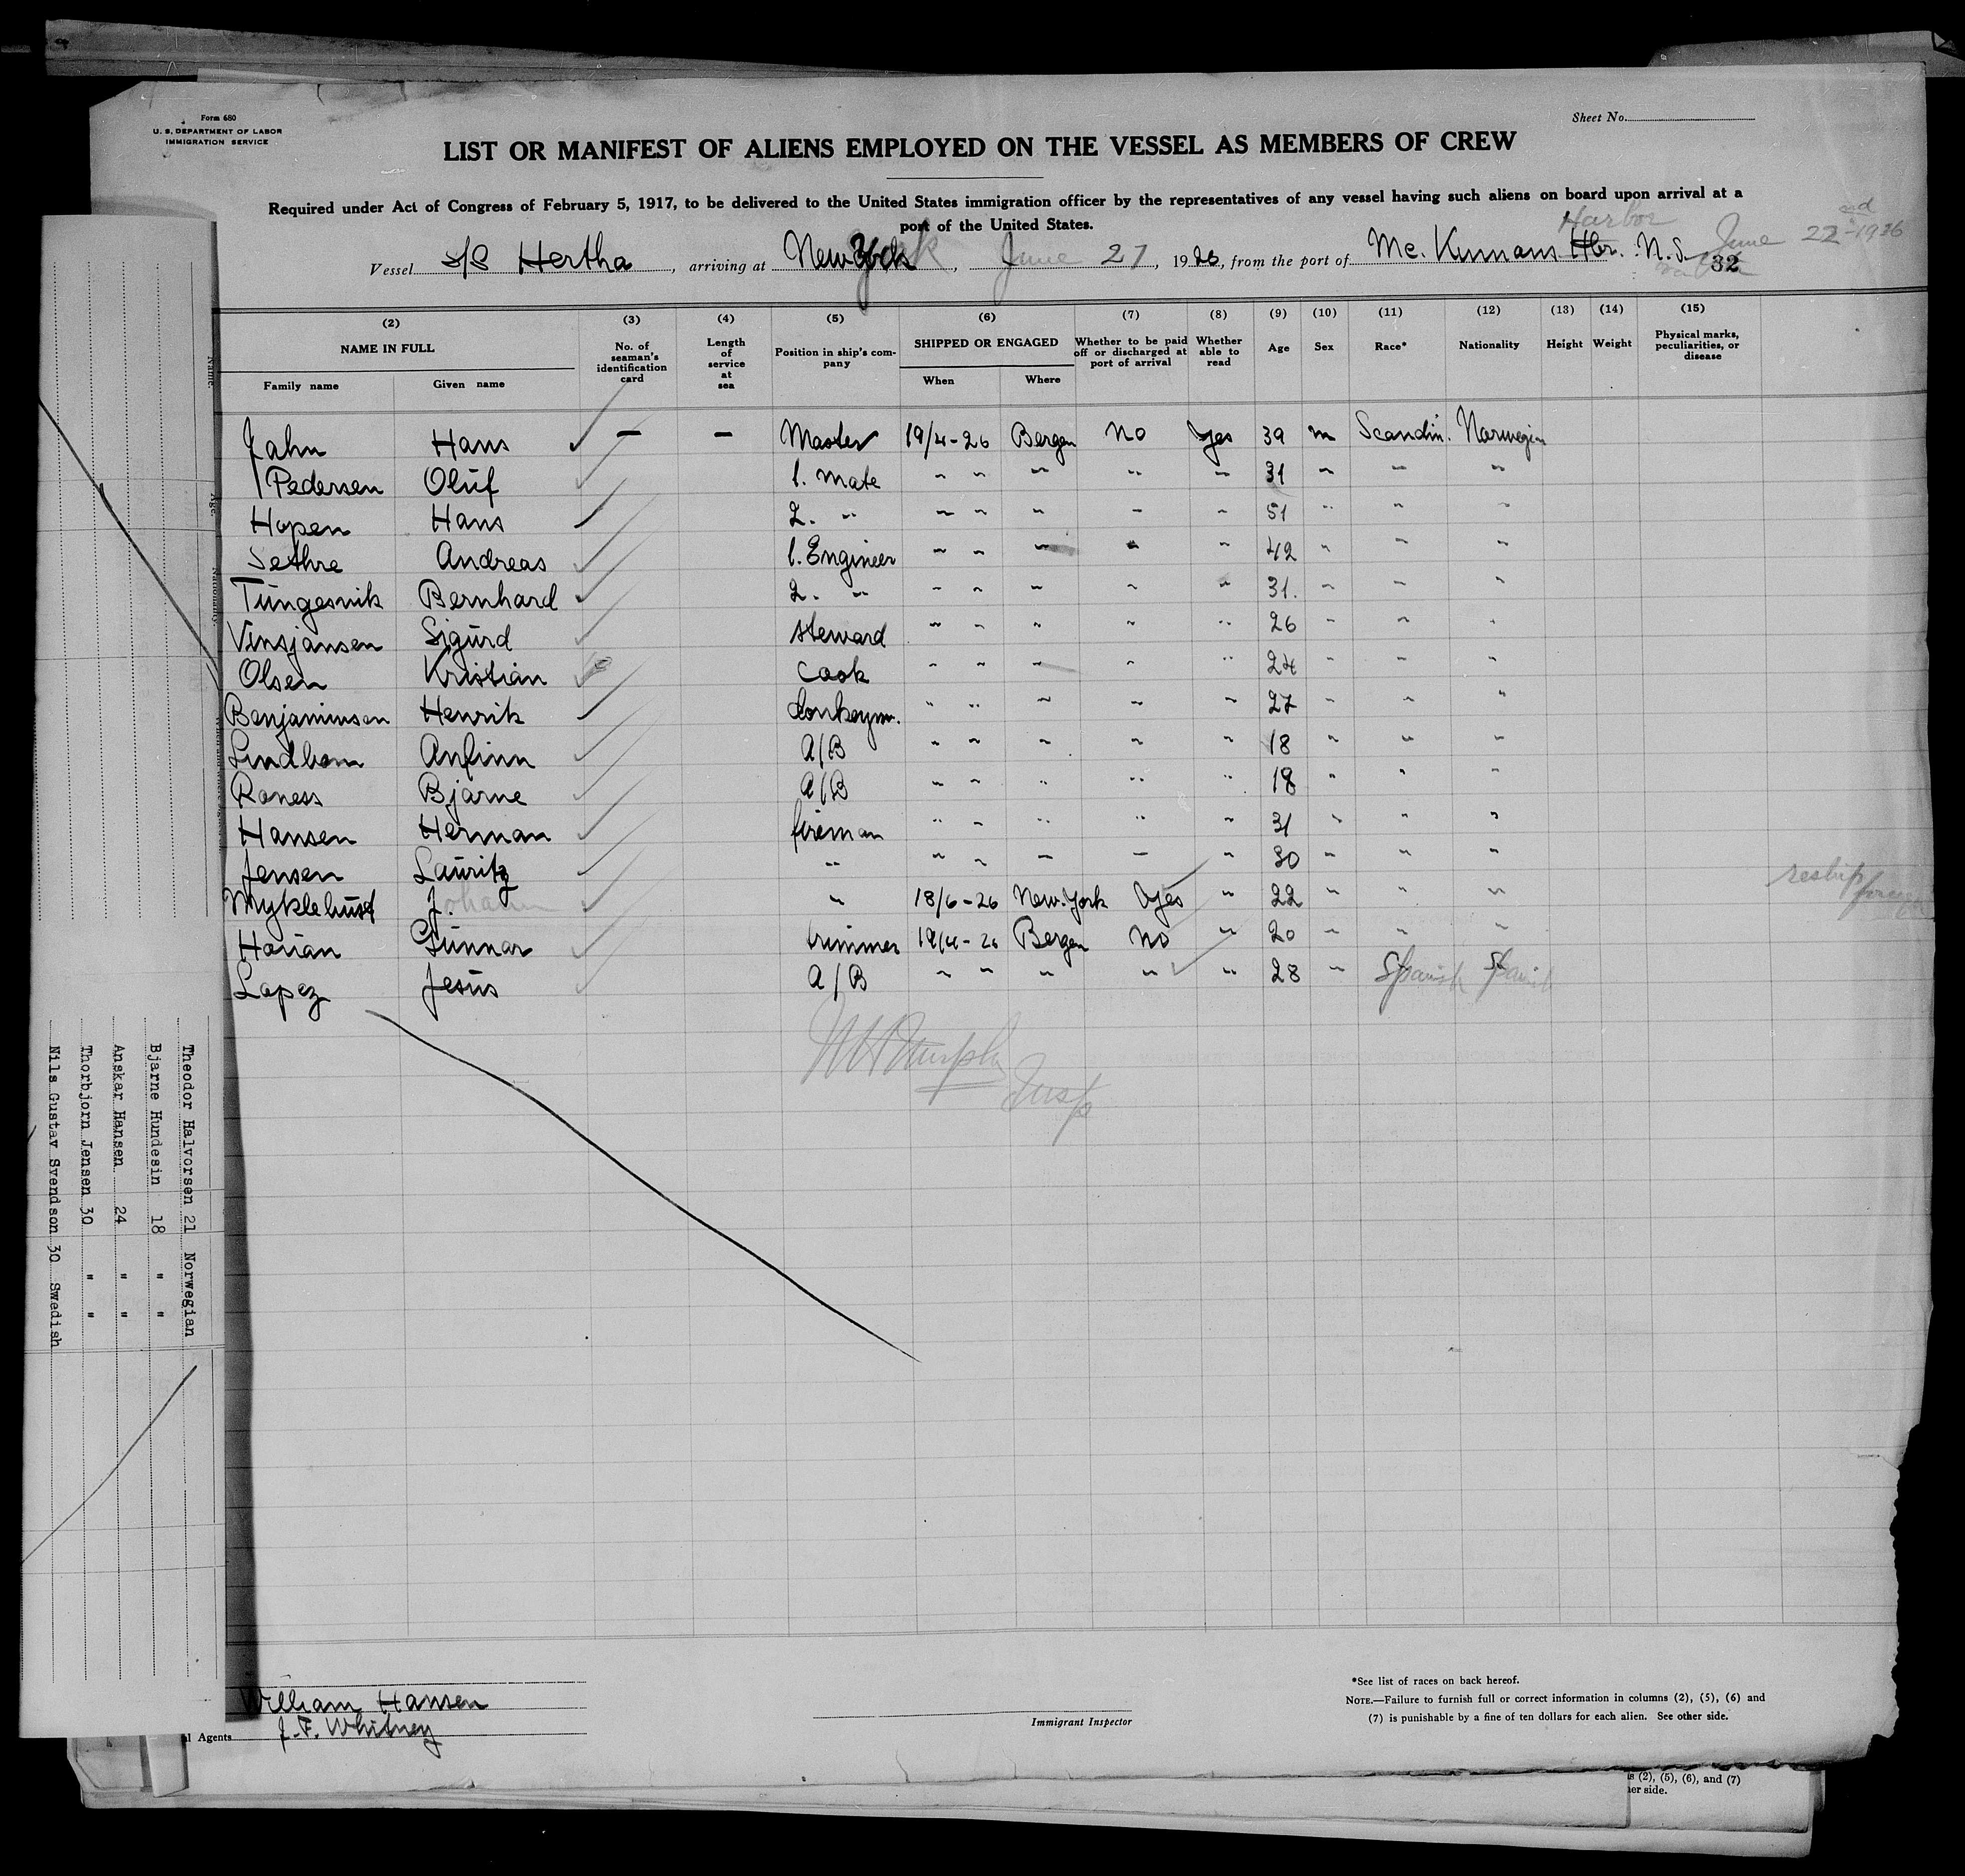 Form 680
U. S. DEPARTMENT OF LABOR
IMMIGRATION SERVICE
Sheet No.
LIST OR MANIFEST OF ALIENS EMPLOYED ON THE VESSEL AS MEMBERS OF CREW
Required under Act of Congress of February 5, 1917, to be delivered to the United States immigration officer by the representatives of any vessel having such aliens on board upon arrival at a
port of the United States.
Harbor
June 22nd-1926
Vessel S/S Hertha, arriving at New York, June 27, 1926, from the port of Mc. Kinnans Hbr. N.S.
32
(2) (3) (4) (5) (6) (7) (8) (9) (10) (11) (12) (13) (14) (15)
NAME IN FULL No. of seaman's identification card Length of service at sea Position in ship's company SHIPPED OR ENGAGED Whether to be paid off or discharged at port of arrival Whether able to read Age Sex Race* Nationality Height Weight Physical marks, peculiarities, or disease
Family name Given name When Where
Jahn Hans – – Master 19/4-26 Bergen No Yes 39 m Scandin. Norwegin
Pedersen Oluf 1. mate " " " " " 31 " " "
Hopen Hans 2. " " " " " " 51 " " "
Sethre Andreas 1. Engineer " " " " " 42 " " "
Tungesvik Bernhard 2. " " " " " " 31. " " "
Vinsjansen Sigurd steward " " " " " 26 " " "
Olsen Kristian Cook " " " " " 24 " " "
Benjaminsen Henrik donkeym. " " " " " 27 " " "
Lindbom Anfinn A/B " " " " " 18 " " "
Roness Bjarne A/B " " " " " 18 " " "
Hansen Herman fireman " " " " " 31 " " "
Jensen Lauritz " " " " " " 30 " " "
Myklebust Johann " 18/6-26 New-York Yes " 22 " " " reship
Gunnar trimmer 19/4-26 Bergen No " 20 " " "
Lopez Jesus A/B " " " " " 28 " Spanish Spanish
Insp
Theodor Halvorsen 21 Norwegian
Bjarne Hundesin 18 " "
Anskar Hansen 24 " "
Thorbjorn Jensen 30 " "
Nils Gustav Svendson 30 Swedish
William Hansen
l Agents J. F. Whitney
Immigrant Inspector
*See list of races on back hereof.
NOTE.—Failure to furnish full or correct information in columns (2), (5), (6) and
(7) is punishable by a fine of ten dollars for each alien. See other side.
s (2), (5), (6), and (7)
her side.